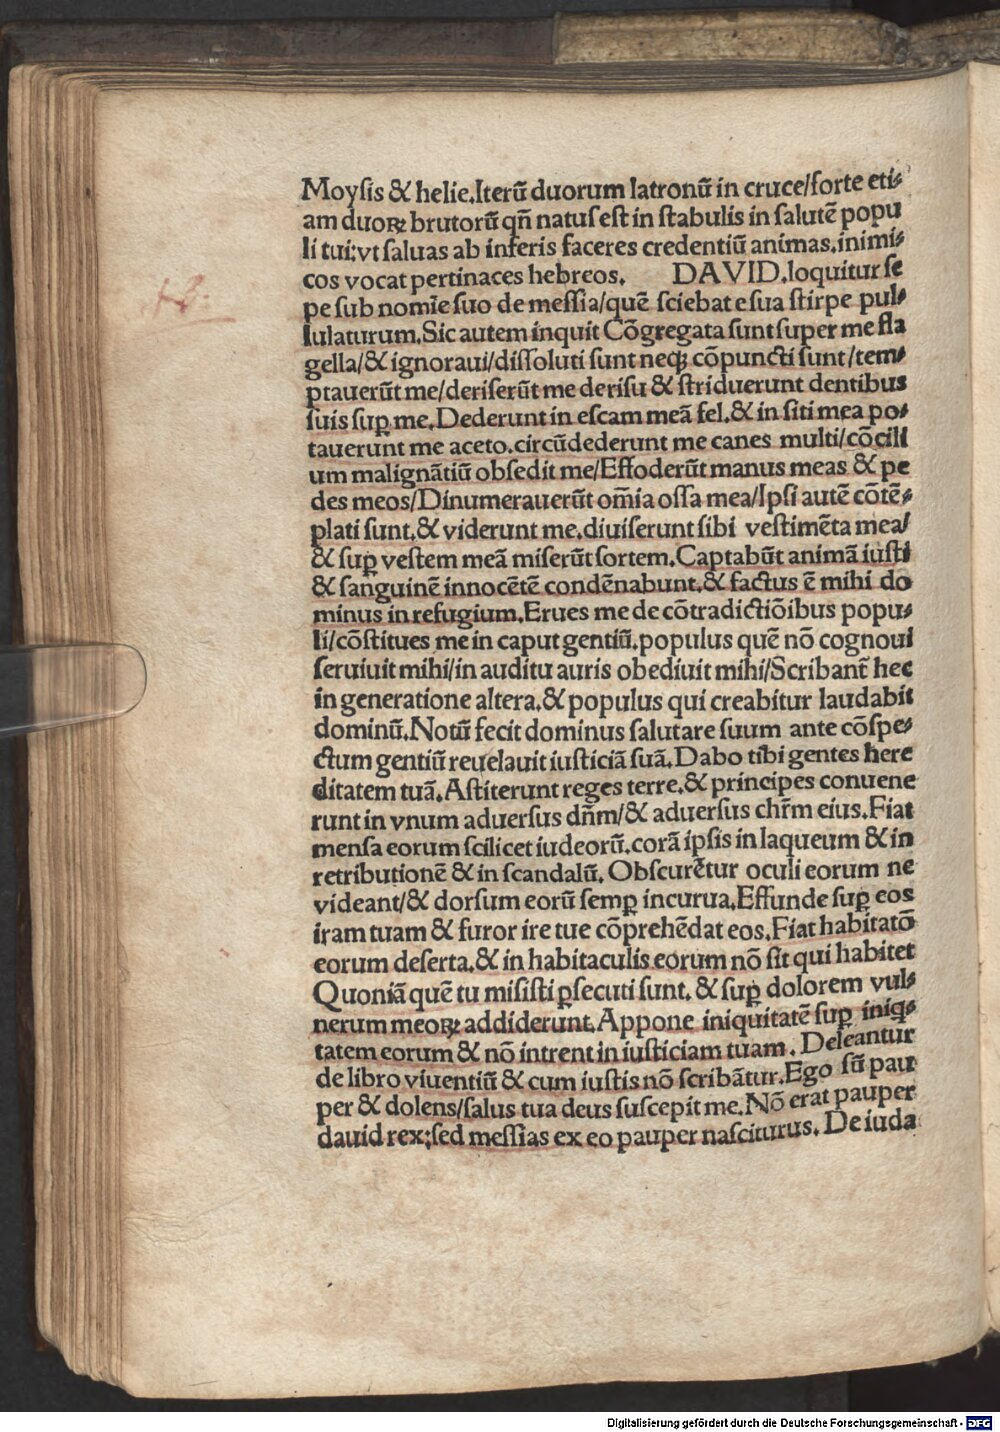 Moyſis & helie.Iterū duorum latronū in cruce/forte eti⸗
am duoꝝ brutorū qñ natus eſt in ſtabulis in ſalutē popu
li tui:vt ſaluas ab inferis faceres credentiū animas.inimi⸗
cos vocat pertinaces hebreos. DAVID.loquitur ſe
pe ſub nomīe ſuo de meſſia/quē ſciebat e ſua ſtirpe pul⸗
lulaturum.Sic autem inquit Cōgregata ſunt ſuper me fla
gella/& ignoraui/diſſoluti ſunt neqꝫ cōpuncti ſunt/tem⸗
ptauerūt me/deriſerūt me deriſu & ſtriduerunt dentibus
ſuis ſuꝑ me.Dederunt in eſcam meā fel.& in ſiti mea po⸗
tauerunt me aceto.circūdederunt me canes multi/cōcili
um malignātiū obſedit me/Effoderūt manus meas & pe
des meos/Dinumerauerūt om̄ia oſſa mea/Ipſi autē cōtē⸗
plati ſunt.& viderunt me.diuiſerunt ſibi veſtimēta mea/
& ſuꝑ veſtem meā miſerūt ſortem.Captabūt animā iuſti
& ſanguinē innocētē condēnabunt.& factus ē mihi do
minus in refugium.Erues me de cōtradictiōibus popu⸗
li/cōſtitues me in caput gentiū.populus quē nō cognoui
ſeruiuit mihi/in auditu auris obediuit mihi/Scribant̄ hec
in generatione altera.& populus qui creabitur laudabit
dominū.Notū fecit dominus ſalutare ſuum ante cōſpe⸗
ctum gentiū reuelauit iuſticiā ſuā.Dabo tibi gentes here
ditatem tuā.Aſtiterunt reges terre.& principes conuene
runt in vnum aduerſus dn̄m/& aduerſus chr̄m eius.Fiat
menſa eorum ſcilicet iudeorū.corā ipſis in laqueum & in
retributionē & in ſcandalū. Obſcurētur oculi eorum ne
videant/& dorſum eorū ſemꝑ incurua.Effunde ſuꝑ eos
iram tuam & furor ire tue cōprehēdat eos.Fiat habitatō
eorum deſerta.& in habitaculis eorum nō ſit qui habitet
Quoniā quē tu miſiſti ꝑſecuti ſunt. & ſuꝑ dolorem vul⸗
nerum meoꝝ addiderunt.Appone iniquitatē ſuꝑ iniq⸗
tatem eorum & nō intrent in iuſticiam tuam. Deleantur
de libro viuentiū & cum iuſtis nō ſcribātur.Ego ſū pau
per & dolens/ſalus tua deus ſuſcepit me.Nō erat pauper
dauid rex:ſed meſſias ex eo pauper naſciturus. De iuda
Digitalisierung gefördert durch die Deutsche Forschungsgemeinschaft - DFG